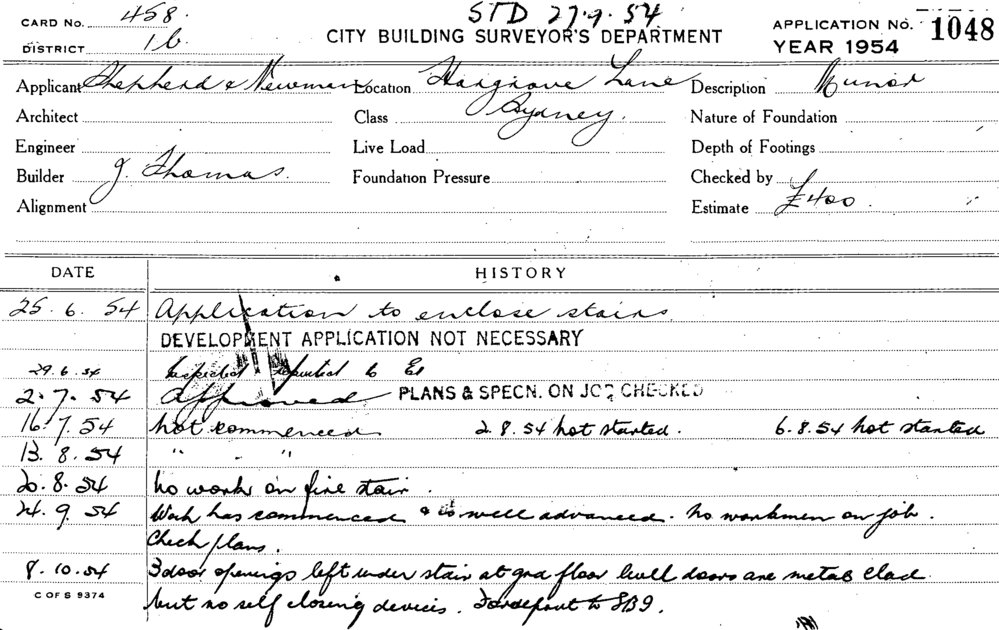 CARD No. 458. STD 27.9.54 APPLICATION No. 1048
DISTRICT 1b. CITY BUILDING SURVEYOR'S DEPARTMENT YEAR 1954
Applicant Shepherd & Newman Location Hargrove Lane Description Minor
Architect Class Sydney. Nature of Foundation
Engineer Live Load Depth of Footings
Builder J. Thomas. Foundation Pressure Checked by
Alignment Estimate £400.
DATE HISTORY
25.6.54 Application to enclose stairs
DEVELOPMENT APPLICATION NOT NECESSARY
29.6.54 Inspected reported to
2.7.54 Approved PLANS & SPECN. ON JOB CHECKED
16.7.54 not commenced 2.8.54 not started. 6.8.54 not started
13.8.54 " " "
20.8.54 No work on fire stair.
24.9.54 Work has commenced & is well advanced. No workmen on job.
Check plans.
8.10.54 3 door openings left under stair at grd floor level doors are metal clad
C OF S 9374 but no self closing devices. to SB9.